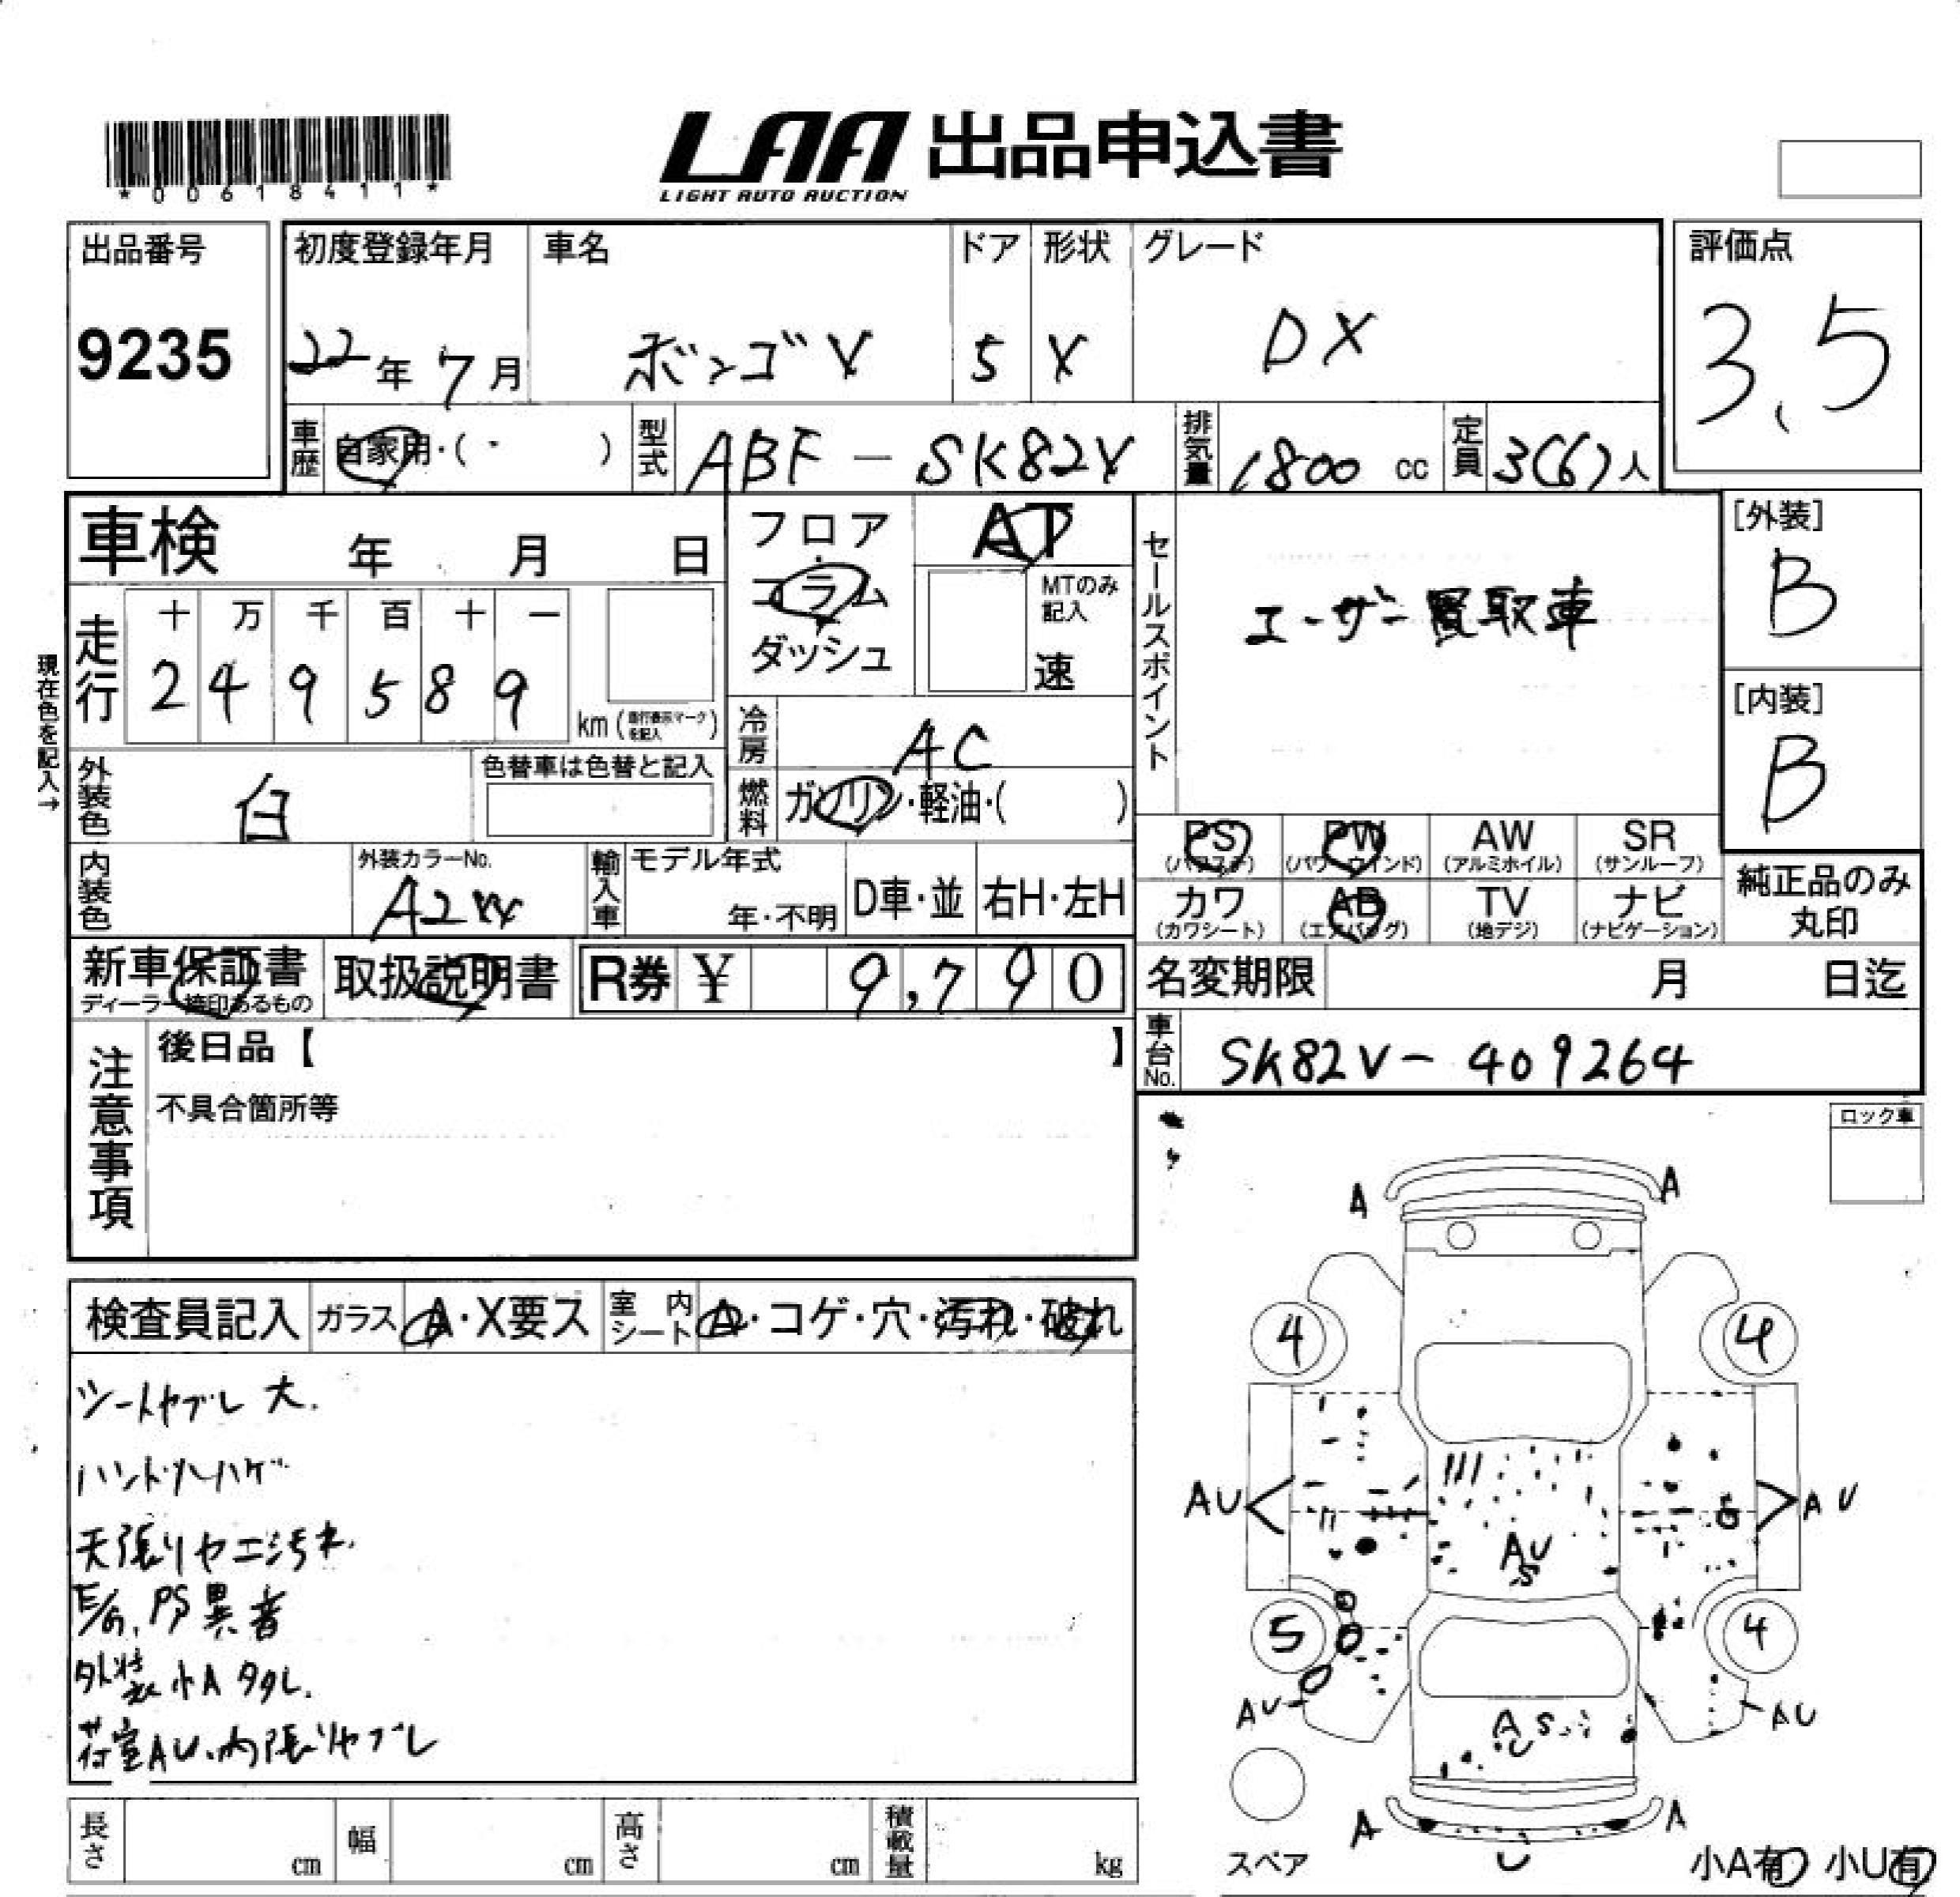 LAA 出品申込書
LIGHT AUTO AUCTION
*00618411*
出品番号
9235
初度登録年月
22年7月
車名
ボンゴV
ドア
5
形状
V
グレード
DX
評価点
3.5
車歴
自家用・( ・ )
型式
ABF-SK82V
排気量
1800 cc
定員
3(6)人
車検 年 月 日
フロア・コラム・ダッシュ
AT
MTのみ記入
速
セールスポイント
ユーザー買取車
[外装]
B
[内装]
B
現在色を記入→
走行
十 万 千 百 十 一
2 4 9 5 8 9
km(走行表示マークを記入)
冷房
AC
外装色
白
色替車は色替と記入
燃料
ガソリン・軽油・( )
PS
(パワステ)
PW
(パワーウインド)
AW
(アルミホイル)
SR
(サンルーフ)
カワ
(カワシート)
AB
(エアバッグ)
TV
(地デジ)
ナビ
(ナビゲーション)
純正品のみ
丸印
内装色
外装カラーNo.
A2W
輸入車
モデル年式
年・不明
D車・並
右H・左H
新車保証書
ディーラー捺印あるもの
取扱説明書
R券 ¥ 9,790
名変期限 月 日迄
車台No.
SK82V-409264
注意事項
後日品【 】
不具合箇所等
ロック車
検査員記入
ガラス
A・X要ス
室内シート
A・コゲ・穴・汚れ・破れ
シートヤブレ 大.
ハンドルハゲ
天張りヤニ汚れ.
E/G, PS異音
外装小Aタタレ.
荷室AU.内張リヤブレ
A A
4 4
AU AU
AU
S
5 4
AU AU
A S
U
A A
U
スペア
小A有 小U有
長さ cm
幅 cm
高さ cm
積載量 kg